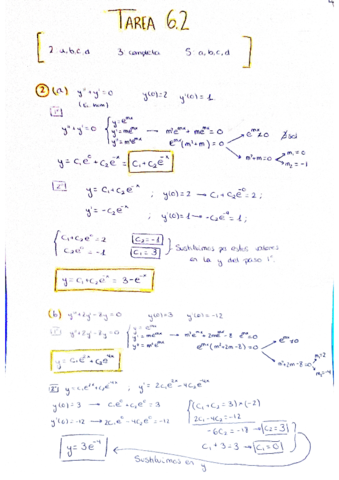 TAREA 6.2
2 a,b,c,d 3 completa 5 a,b,c,d
② (a) y'' + y' = 0 y(0)=2 y'(0)=1
y'' + y' = 0 { y=e^{mx} y'=me^{mx} y''=m²e^{mx} → m²e^{mx} + me^{mx} = 0
e^{mx}(m²+m) = 0
e^{mx} ≠ 0 ∄ sol
m²+m=0 m₁=0 m₂=-1
y = C₁e⁰ + C₂e^{-x} = C₁ + C₂e^{-x}
y = C₁ + C₂e^{-x} ; y(0)=2 → C₁ + C₂e^{-0} = 2 ;
y' = -C₂e^{-x} ; y'(0)=1 → -C₂e^{-0} = 1 ;
{ C₁ + C₂ = 2 C₂ = -1
C₂e^{-0} = -1 C₁ = 3
Sustituimos estos valores
en la y del paso 1º
y = C₁ + C₂e^{-x} = 3 - e^{-x}
(b) y'' + 2y' - 8y = 0 y(0)=3 y'(0)=-12
y'' + 2y' - 8y = 0 { y=e^{mx} y'=me^{mx} y''=m²e^{mx} → m²e^{mx} + 2me^{mx} - 8e^{mx} = 0
e^{mx}(m²+2m-8) = 0
e^{mx} ≠ 0
m²+2m-8=0 m₁=2 m₂=-4
y = C₁e^{2x} + C₂e^{-4x}
y = C₁e^{2x} + C₂e^{-4x} ; y' = 2C₁e^{2x} - 4C₂e^{-4x}
y(0) = 3 → C₁e⁰ + C₂e⁰ = 3 { (C₁ + C₂ = 3) × (-2)
y'(0) = -12 → 2C₁e⁰ - 4C₂e⁰ = -12 2C₁ - 4C₂ = -12
-6C₂ = -18 → C₂ = 3
C₁ + 3 = 3 → C₁ = 0
y = 3e^{-4x}
Sustituimos en y